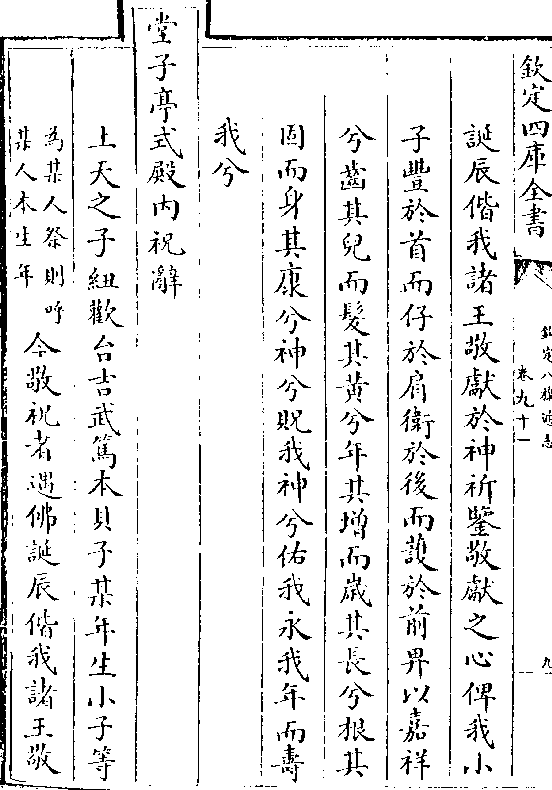 欽定四庫全書
欽定八旗通志
卷九十一
九
誕辰偕我諸王敬獻於神祈鑒敬獻之心俾我小
子豐於首而仔於肩衛於後而護於前畀以嘉祥
兮齒其兒而髮其黃兮年其增而歲其長兮根其
固而身其康兮神兮貺我神兮佑我永我年而壽
我兮
堂子亭式殿内祝辭
上天之子紐歡台吉武篤本貝子某年生小子等
為某人祭則呼
某人本生年
今敬祝者遇佛誕辰偕我諸王敬